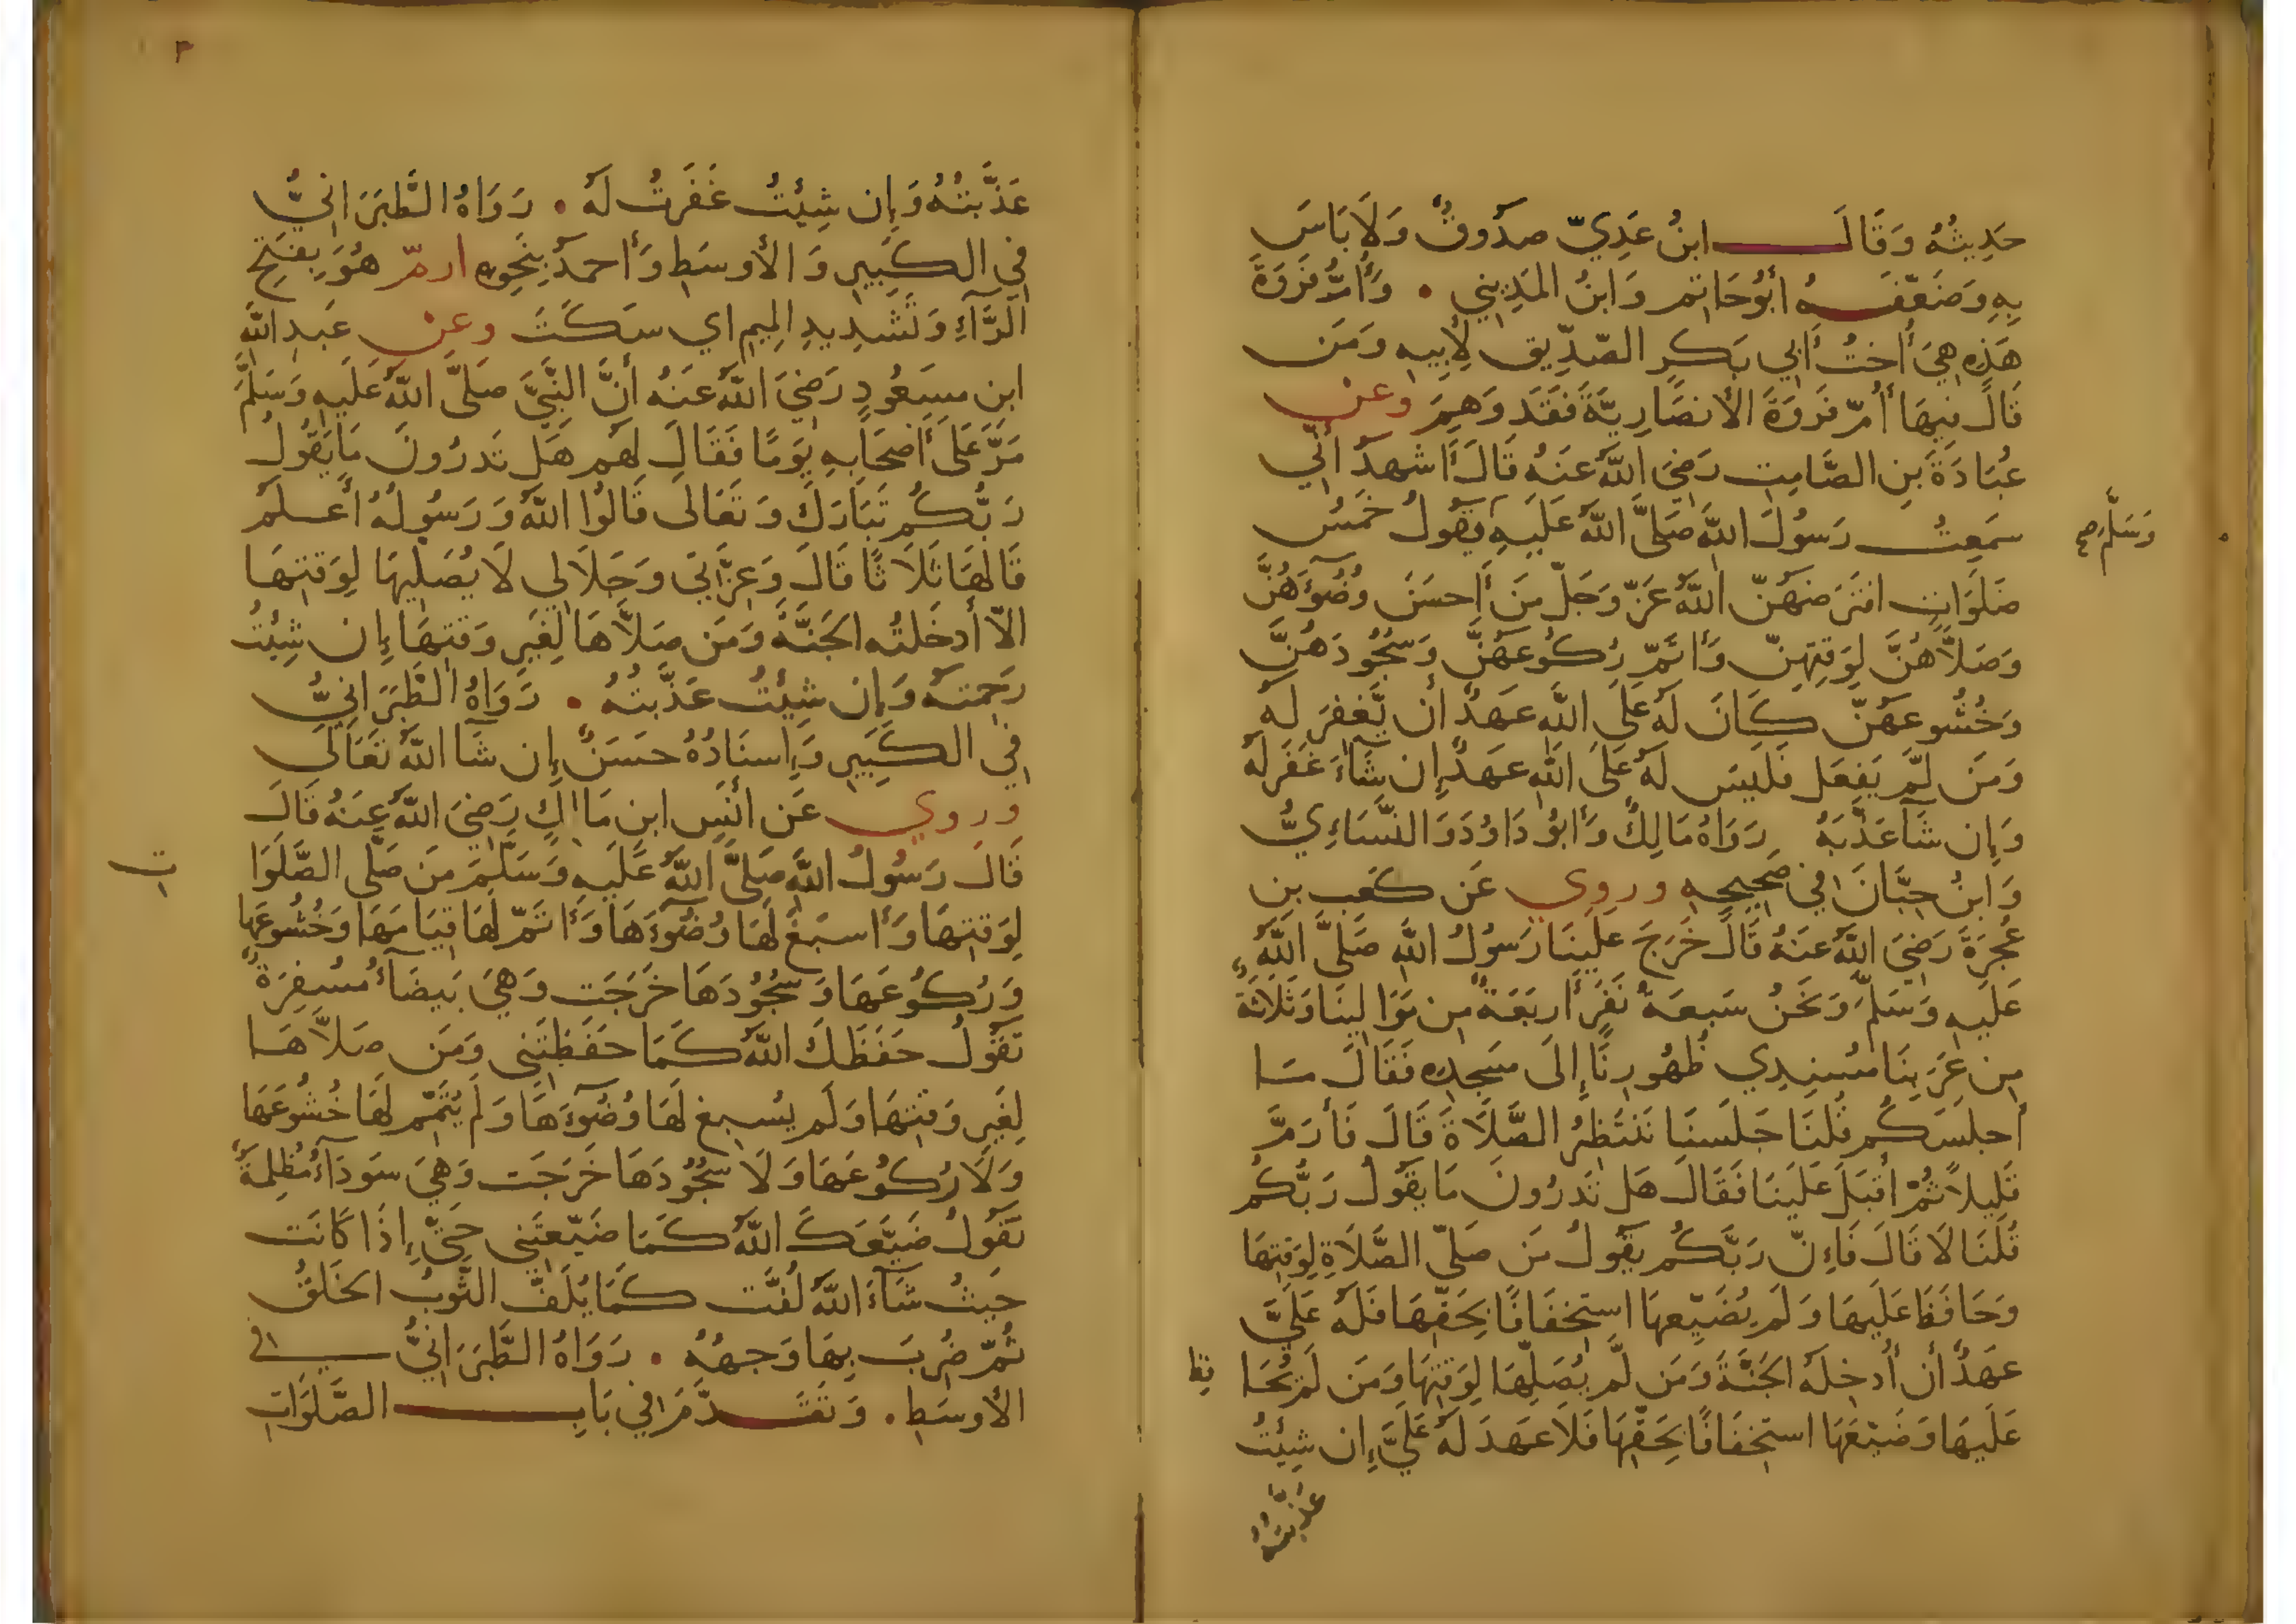 حَدِيثُهُ وَقَالَ ابنُ عَدِيّ صدُوقٌ وَلَا بَاسَ
بِهِ وَضَعّفَهُ أبُو حَاتِم وَابنُ المَدِينِي . وَأُمُّ فَروَةَ
هَذِهِ هِيَ أُختُ أبي بَكرٍ الصّدِّيق لِأبِيهِ وَمَن
قَالَ فِيهَا أُمّ فَروَةَ الأنصَارِيَّةَ فَقَد وَهِمَ وعن
عُبَادَةَ بنِ الصَّامِتِ رَضِيَ اللّهُ عَنهُ قَالَ أشهدُ أنّي
سَمِعتُ رَسُولَ اللّهِ صَلَّى اللّهُ عَلَيهِ يَقُولُ خَمسُ
وَسَلَّمَ صح
صَلَوَاتٍ افتَرَضَهُنّ اللّهُ عَزّ وَجَلّ مَن أَحسَنَ وُضُوءَهُنَّ
وَصَلاَّهُنَّ لِوَقتِهِنّ وَأتَمّ رُكُوعَهُنَّ وَسُجُودَهُنَّ
وَخُشُوعَهُنّ كَانَ لَهُ عَلَى اللّهِ عَهدٌ أن يَّغفِرَ لَهُ
وَمَن لَّم يَفعَل فَلَيسَ لَهُ عَلَى اللّهِ عَهدٌ إن شَآءَ غَفَرَ لَهُ
وَإِن شَآ عَذَّبَهُ رَوَاهُ مَالِكٌ وَأبُو دَاوُدَ وَالنَّسَاءِيُّ
وَابنُ حِبَّانَ في صَحِيحِهِ وروي عَن كَعب بنِ
عُجرَةَ رَضِيَ اللّهُ عَنهُ قَالَ خَرَجَ عَلَينَا رَسُولُ اللّهِ صَلَّى اللّهُ
عَلَيهِ وَسَلَّمَ وَنَحنُ سَبعَةُ نَفَرٍ أربَعَةٌ مِن مَوَالِينَا وَثَلَاثَة
مِن عَرَبِنَا مُسنِدِي ظُهُورِنَا إِلَى مَسجِدِهِ فَقَالَ مَا
أجلسَكُم قُلنَا جَلَسنَا نَنتَظِرُ الصَّلَاةَ قَالَ فَأَرَمَّ
قَلِيلاً ثُمّ اقبَلَ عَلَينَا فَقَالَ هَل تَدرُونَ مَا يَقُولُ رَبُّكُم
قُلنَا لَا قَالَ فَإنّ رَبَّكُم يَقُولُ مَن صَلّى الصَّلَاةِ لِوَقتِهَا
وَحَافَظَ عَلَيهَا وَلَم يُضَيِّعهَا استِخفَافًا بِحَقِّهَا فَلَهُ عَلَيَّ
عَهدٌ أن أُدخِلَهُ الجَنَّةَ وَمَن لَّم يُصَلِّهَا لِوَقتِهَا وَمَن لَم يُحَا
عَلَيهَا وَضَيّعَهَا استِخفَافًا بِحَقِّهَا فَلَا عَهدَ لَهُ عَلَيَّ إن شِيئتُ
عَذّبتُهُ
٣
عَذّبتُهُ وَإِن شِيئتُ غَفَرتُ لَهُ . رَوَاهُ الطَّبَرَانِيُّ
فِي الكَبِيرِ وَالأوسَطِ وَأحمدُ بِنَحوِهِ ارمّ هُوَ بِفَتحِ
الرَّآءِ وَتَشدِيدِ المِيمِ اي سَكَتَ وعن عَبدِ اللّهِ
ابنِ مسعُودٍ رَضِيَ اللّهُ عَنهُ أنَّ النَّبِيَّ صَلَّى اللّهُ عَلَيهِ وَسَلَّمَ
مَرَّ عَلَى أَصحَابِهِ يَومًا فَقَالَ لَهُم هَل تَدرُونَ مَا يَقُولُ
رَبُّكُم تَبَارَكَ وَتَعَالَى قَالُوا اللّهُ وَرَسُولُهُ أعلَمُ
قَالَهَا ثَلاَثًا قَالَ وَعِزَّتِي وَجَلاَلِي لَا يُصَلِّيهَا لِوَقتِهَا
الاّ أدخَلتُه الجَنَّةَ وَمَن صَلاَّهَا لِغَيرِ وَقتِهَا إِن شِيئتُ
رَحِمتُهُ وَإن شِيئتُ عَذَّبتُهُ . رَوَاهُ الطَّبَرَانِيُّ
فِي الكَبِيرِ وَإسنَادُهُ حسَنٌ إن شَآ اللّهُ تَعَالَى
وروي عَن أنَسِ ابنِ مَالِكٍ رَضِيَ اللّهُ عَنهُ قَالَ
قَالَ رَسُولُ اللّهِ صَلَّى اللّهُ عَلَيهِ وَسَلَّمَ مَن صَلَّى الصَّلَوَا
ت
لِوَقتِهَا وَأسبَغَ لَهَا وُضُوءَهَا وَأتَمّ لَهَا قِيَامَهَا وَخُشُوعَهَا
وَرُكُوعَهَا وَسُجُودَهَا خَرَجَت وَهِيَ بَيضَآءُ مُسفِرَةٌ
تَقُولُ حَفَظَكَ اللّهُ كَمَا حَفَظتَنِي وَمَن صَلاَّهَا
لِغَيرِ وَقتِهَا وَلَم يُسبِغ لَهَا وُضُوءَهَا وَلَم يُتَمِّم لَهَا خُشُوعَهَا
وَلَا رُكُوعَهَا وَلَا سُجُودَهَا خَرَجَت وَهِيَ سَودَآءُ مُظلِمَةٌ
تَقُولُ ضَيَّعَكَ اللّهُ كَمَا ضَيّعتَنِي حَتّى إِذَا كَانَت
حَيثُ شَآءَ اللّهُ لُفَّت كَمَا يُلَفُّ الثَّوبُ الخَلَقُ
ثُمّ ضُرِبَ بِهَا وَجهُهُ . رَوَاهُ الطَّبَرَانِيُّ في
الأوسَطِ . وَتَقَدَّمَ في بَابِ الصَّلَوَاتِ